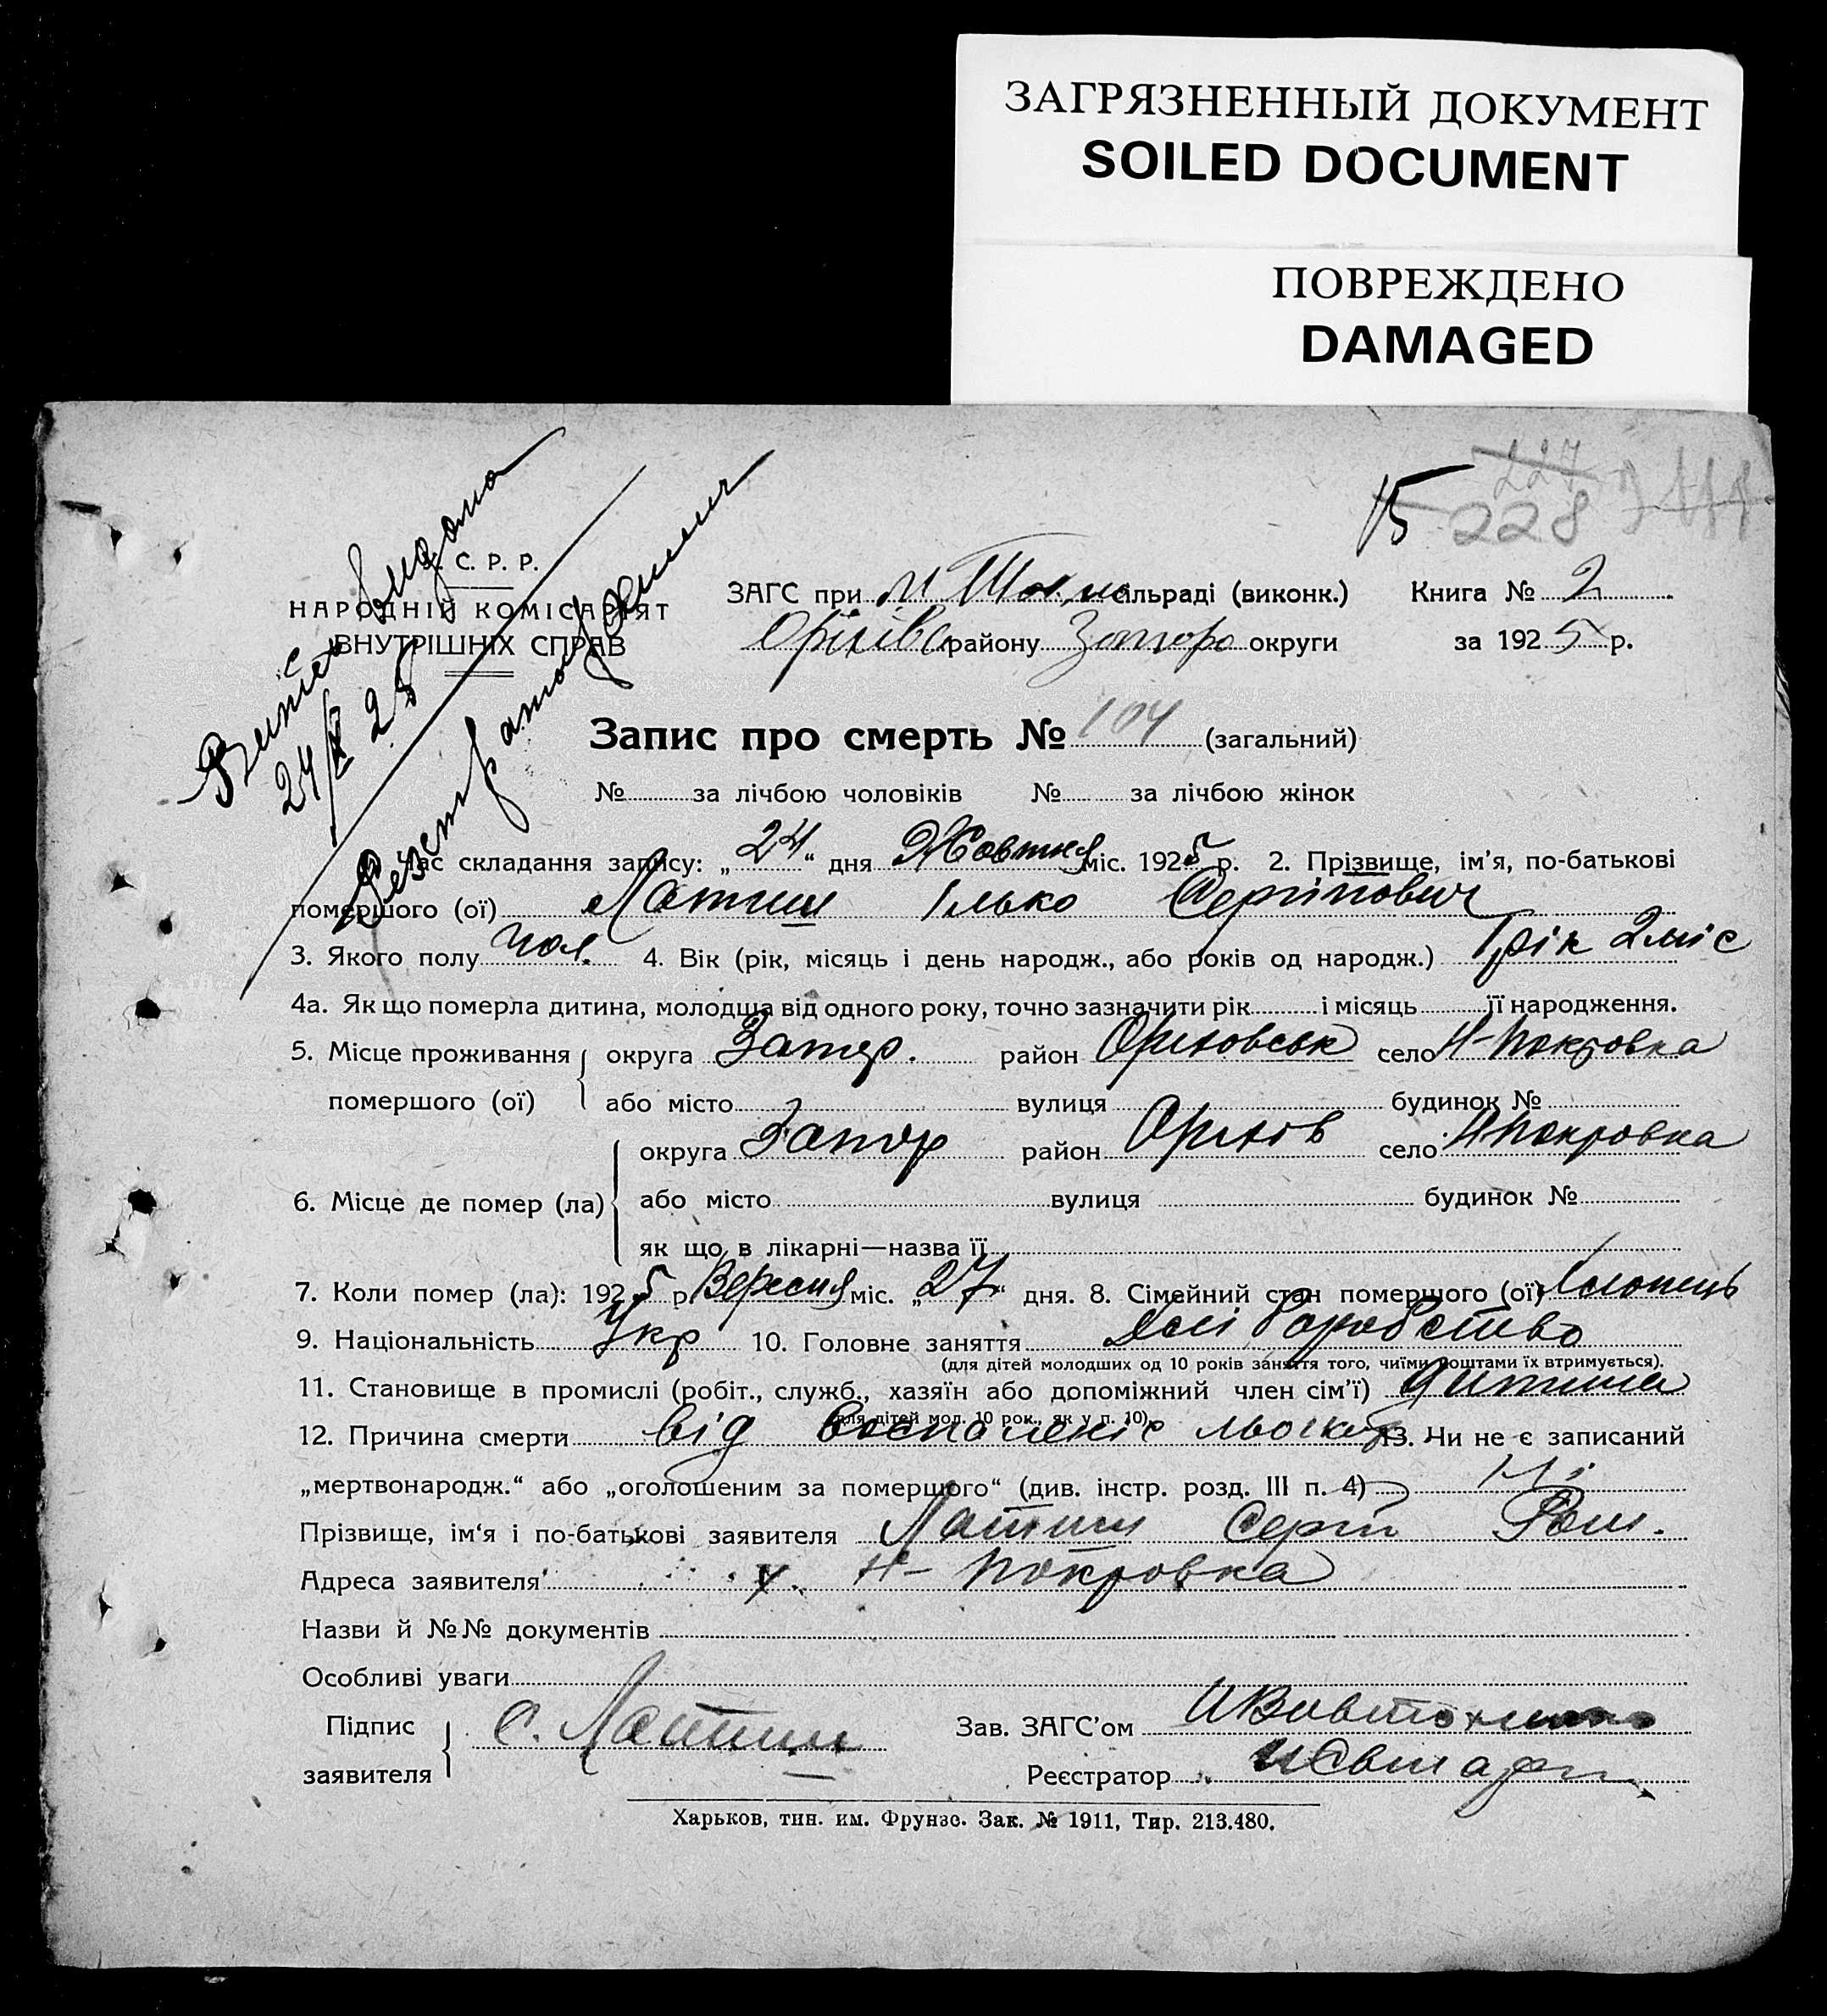 ЗАГРЯЗНЕННЫЙ ДОКУМЕНТ
SOILED DOCUMENT
ПОВРЕЖДЕНО
DAMAGED
15 227
228
С. Р. Р.
НАРОДНІЙ КОМІСАРІЯТ
ВНУТРІШНІХ СПРАВ
Витяг видано
24/X 25
ЗАГС при М Ток сільраді (виконк.) Книга № 2
Оріхівс району Запоро округи за 1925 р.
Запис про смерть № 104 (загальний)
№ за лічбою чоловіків № за лічбою жінок
Час складання запису: „24“ дня Жовтня міс. 1925 р. 2. Прізвище, ім’я, по-батькові
помершого (ої) Латиш Ілько Сергійович
3. Якого полу чол. 4. Вік (рік, місяць і день народж., або років од народж.) 1 рік 2 міс
4а. Як що померла дитина, молодша від одного року, точно зазначити рік і місяць її народження.
5. Місце проживання округа Запор. район Оріховськ село Н-Покровка
помершого (ої) або місто вулиця будинок №
округа Запор район Оріхів село Н Покровка
6. Місце де помер (ла) або місто вулиця будинок №
як що в лікарні—назва її
7. Коли помер (ла): 1925 р. Вересня міс. „27“ дня. 8. Сімейний стан помершого (ої) Хлопець
9. Національність Укр 10. Головне заняття
(для дітей молодших од 10 років заняття того, чиїми коштами їх втримується).
11. Становище в промислі (робіт., служб., хазяїн або допоміжний член сім’ї) Дитина
(для дітей мол. 10 рок., як у п. 10).
12. Причина смерти від 13. Чи не є записаний
„мертвонародж.“ або „оголошеним за померщого“ (див. інстр. розд. III п. 4) Ні
Прізвище, ім‘я і по-батькові заявителя Латиш Сергій
Адреса заявителя Н-Покровка
Назви й №№ документів
Особливі уваги
Підпис С. Латиш Зав. ЗАГС’ом
заявителя Реєстратор
Харьков, тип. им. Фрунзе. Зак. № 1911, Тир. 213.480.